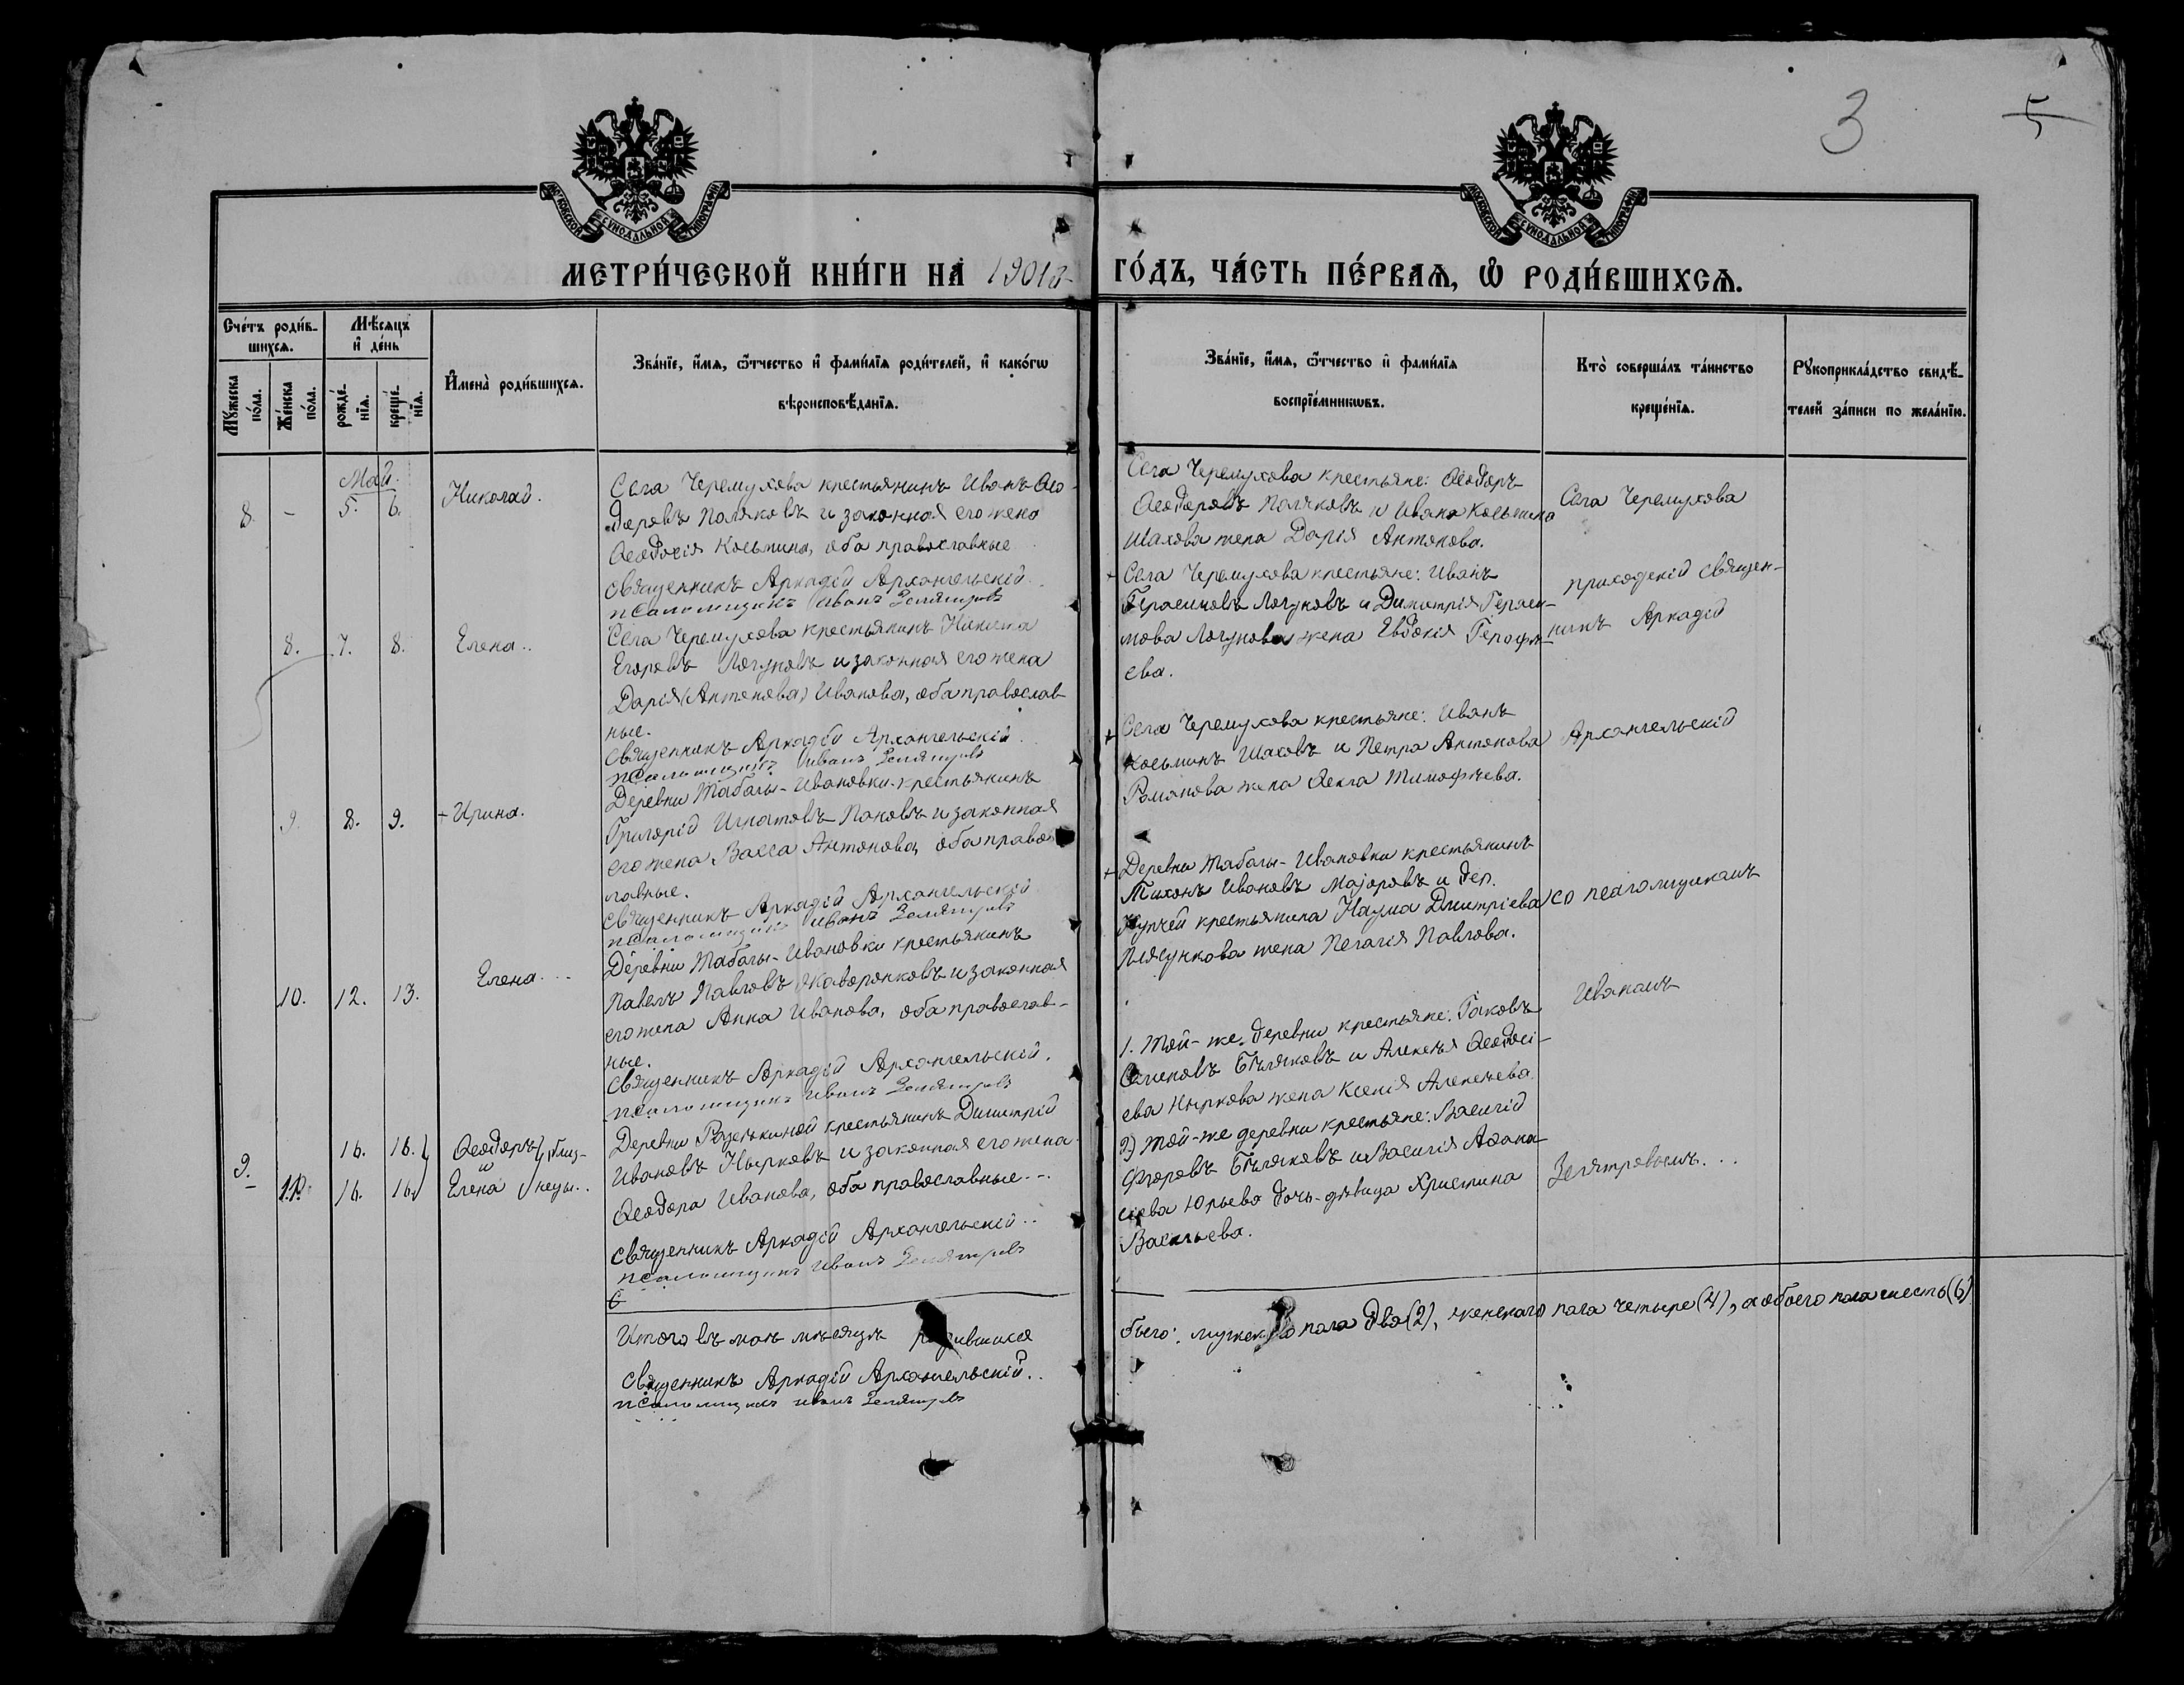 3
5
МОСКОВСКОЙ СѴНОДАЛЬНОЙ ТИПОГРАФІИ
МОСКОВСКОЙ СѴНОДАЛЬНОЙ ТИПОГРАФІИ
МЕТРИ́ЧЕСКОЙ КНИ́ГИ НА 1901й ГО́ДЪ, ЧА́СТЬ ПЕ́РВАѦ, Ѽ РОДИ́ВШИХСѦ.
Счétъ роди́в-
шихсѧ.
Мꙋ́жеска по́ла.
Же́нска по́ла.
Мѣ́сѧцъ и҆ де́нь
рожде́-
нїѧ.
креще́-
нїѧ.
И҆мена̀ роди́вшихсѧ.
Зва́нїе, и҆́мѧ, ѻ҆́тчество и҆ фами́лїѧ роди́телей, и҆ како́гѡ
вѣроисповѣ́данїѧ.
Зва́нїе, и҆́мѧ, ѻ҆́тчество и҆ фами́лїѧ
воспрїе́мникѡвъ.
Кто̀ соверша́лъ та́инство
креще́нїѧ.
Рꙋкоприкла́дство свидѣ́-
телей за́писи по жела́нїю.
Май.
8. - 5. 6. Николай.
Села Черемухова крестьянинъ Иванъ Ѳео-
доровъ Поляковъ и законная его жена
Ѳеодосія Косьмина, оба православные
Священникъ Аркадій Архангельскій.
псаломщикъ Иванъ Земятровъ
Села Черемухова крестьяне: Ѳеодоръ
Ѳеодоровъ Поляковъ и Ивана Косьмина
Шахова жена Дарія Антонова.
8. 7. 8. Елена..
Села Черемухова крестьянинъ Никита
Егоровъ Логуновъ и законная его жена
Дарія (Антонова) Иванова, оба православ-
ные.
Священникъ Аркадій Архангельскій.
псаломщикъ Иванъ Земятровъ
+ Села Черемухова крестьяне: Иванъ
Герасимовъ Логуновъ и Димитрія Гераси-
мова Логунова жена Евдокія Герофѣ-
ева.
9. 8. 9. + Ирина.
Деревни Табалы-Ивановки крестьянинъ
Григорій Игнатовъ Пановъ и законная
его жена Васса Антонова, оба правос-
лавные.
Священникъ Аркадій Архангельскій
псаломщикъ Иванъ Земятровъ
+ Села Черемухова крестьяне: Иванъ
Косьминъ Шаховъ и Петра Антонова
Романова жена Ѳекла Тимофѣева.
10. 12. 13. Елена...
Деревни Табалы-Ивановки крестьянинъ
Павелъ Павловъ Жаворонковъ и законная
его жена Анна Иванова, оба православ-
ные.
Священникъ Аркадій Архангельскій.
псаломщикъ Иванъ Земятровъ
+ Деревни Табалы-Ивановки крестьянинъ
Тихонъ Ивановъ Маіоровъ и дер.
крестьянина Наума Дмитріева
Плясункова жена Пелагія Павлова.
9. 16. 16. Ѳеодоръ} близ-
и
11. 16. 16. Елена } нецы..
Деревни крестьянинъ Димитрій
Ивановъ Нырковъ и законная его жена
Ѳеодора Иванова, оба православные...
Священникъ Аркадій Архангельскій..
псаломщикъ Иванъ Земятровъ
1. Той-же деревни крестьяне: Іаковъ
Семеновъ Бѣляковъ и Алексѣя Ѳеодосі-
ева Ныркова жена Ксенія Алексѣева.
2) Той-же деревни крестьяне: Василій
Ѳроловъ Бѣляковъ и Василія Аѳана-
сіева Юрьева дочь-дѣвица Христина
Васильева.
Села Черемухова
приходскій священ-
никъ Аркадій
Архангельскій
со псаломщикомъ
Иваномъ
Земятровымъ...
Итого въ маѣ мѣсяцѣ родившихся
было: мужеского пола два (2), женскаго пола четыре (4), а обоего пола шесть (6)
Священникъ Аркадій Архангельскій..
псаломщикъ Иванъ Земятровъ